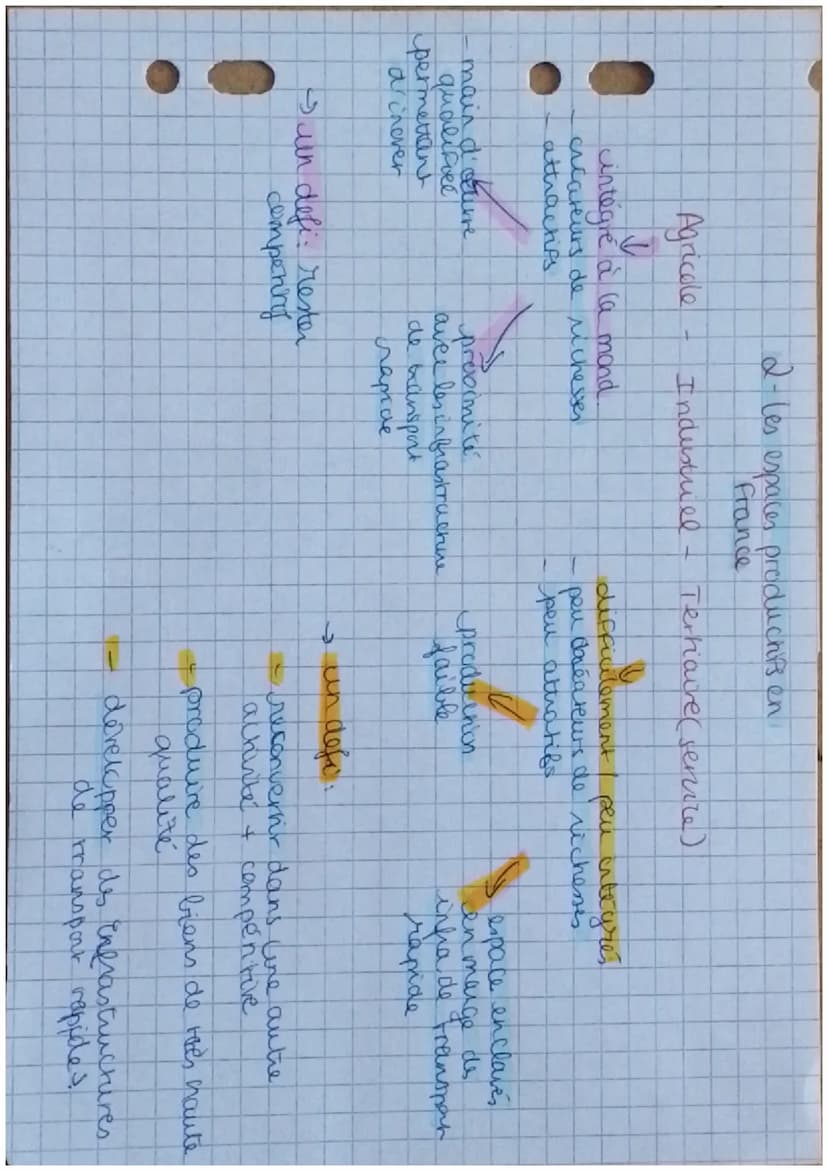 2 - Les espaces productifs en
France
Agricole - Industriel - Tertiaire (service)
intégré à la mond.
- créateurs de richesses
- attractifs
- main d'œuvre
qualifiée
permettant
d'inover
proximité
avec les infrastructure
de transport
rapide
→ un defi: rester
compétitif
difficilement / peu intégrés
- peu créateurs de richesses
- peu attractifs
production
faible
espace enclavés
en marge des
infra de transport
rapide
→ un defi:
- reconvertir dans une autre
activité + compétitive
- produire des biens de très haute
qualité
- développer des infrastructures
de transport rapides.